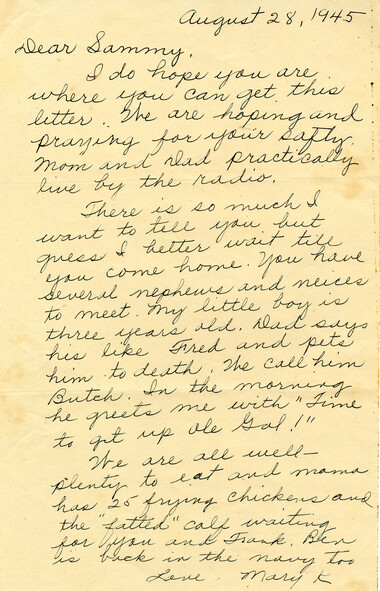 August 28, 1945
Dear Sammy,
I do hope you are
where you can get this
letter. We are hoping and
praying for your safty.
Mom and Dad practically
live by the radio.
There is so much I
want to tell you but
guess I better wait till
you come home. You have
several nephews and neices
to meet. My little boy is
three years old. Dad says
his like Fred and pets
him to death. We call him
Butch. In the morning
he greets me with "Time
to git up Ole Gal!"
We are all well—
plenty to eat and mama
has 25 frying chickens and
the "fatted" calf waiting
for you and Frank. Ben
is back in the navy too
Love. Mary K